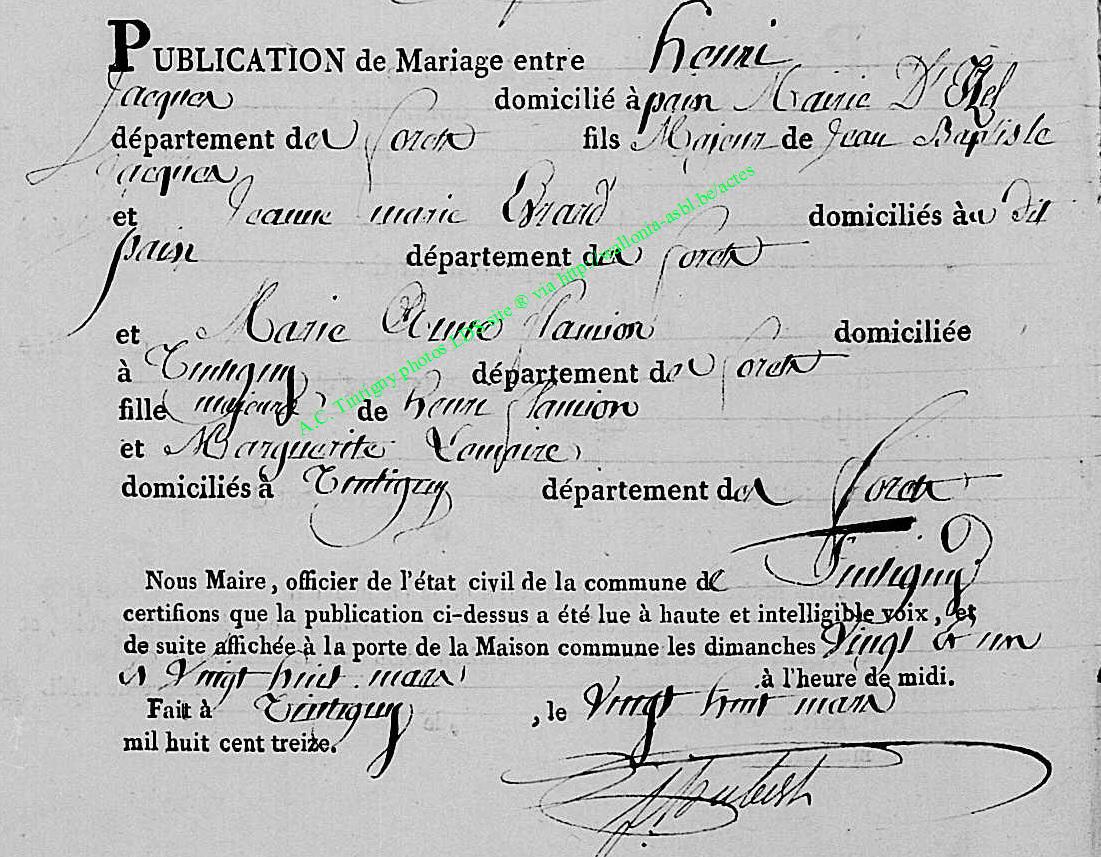 PUBLICATION de Mariage entre henri
Jacques domicilié à pain Mairie D'Izel
département des forets fils Majeur de Jean Baptiste
Jacques
et Jeanne marie domiciliés au dit
pain département des forets
et Marie Anne domiciliée
à Tintigny département des forets
fille majeure de henri
et Marguerite
domiciliés à Tintigny département des forets
Nous Maire, officier de l'état civil de la commune de Tintigny
certifions que la publication ci-dessus a été lue à haute et intelligible voix, et
de suite affichée à la porte de la Maison commune les dimanches Vingt et un
et Vingt huit mars à l'heure de midi.
Fait à Tintigny, le Vingt huit mars
mil huit cent treize.
A.C. Tintigny photos LDS site ® via http://wallonia-asbl.be/actes